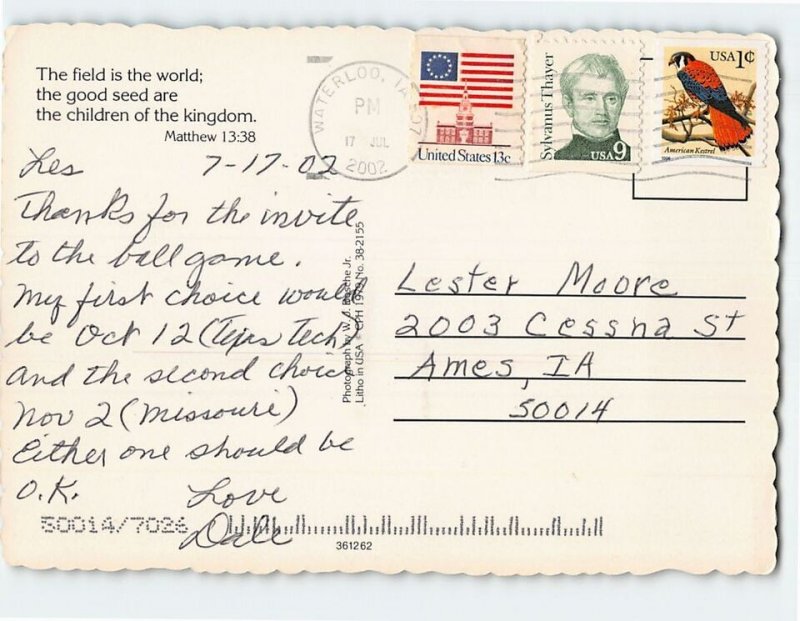 The field is the world;
the good seed are
the children of the kingdom.
Matthew 13:38
WATERLOO, IA 507
PM
17 JUL
2002
United States 13c
Sylvanus Thayer
USA 9
USA 1¢
American Kestrel
1996
Les 7-17-02
Thanks for the invite
to the ball game.
My first choice would
be Oct 12 (Texas Tech)
and the second choice
Nov 2 (Missouri)
Either one should be
O.K.
Love
Dale
Photograph by W. J. Jr.
Litho in USA CPH No. 38-2155
Lester Moore
2003 Cessna St
Ames, IA
50014
50014/7026
361262